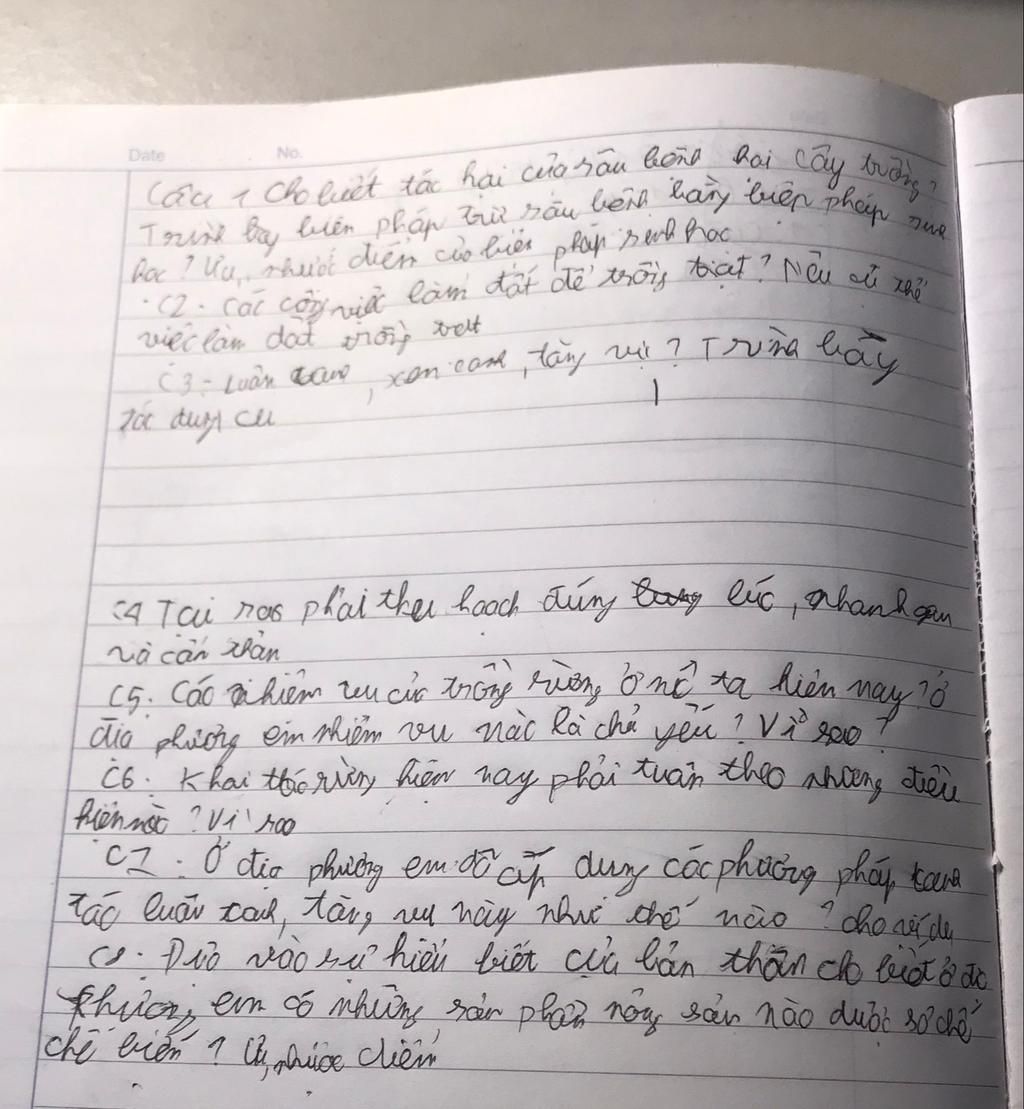 Date No.
Câu 1 Cho biết tác hại của sâu bệnh hại cây trồng?
Trình bày biện pháp trừ sâu bệnh bằng biện pháp sinh
học? Ưu, nhược điểm của biện pháp sinh học
C2. Các công việc làm đất để trồng trọt? Nêu cụ thể
việc làm đất trồng trọt
C3 - Luân canh, xen canh, tăng vụ? Trình bày
tác dụng của
C4 Tại sao phải thu hoạch đúng lúc, nhanh gọn
và cẩn thận
C5. Các nhiệm vụ của trồng rừng ở nc ta hiện nay? ở
địa phương em nhiệm vụ nào là chủ yếu? Vì sao?
C6. Khai thác rừng hiện nay phải tuân theo những điều
kiện nào? Vì sao
C7. Ở địa phương em đã áp dụng các phương pháp canh
tác luân canh, tăng vụ này như thế nào? cho ví dụ
C8. Dựa vào sự hiểu biết của bản thân cho biết ở địa
phương em có những sản phẩm nông sản nào được sơ chế
chế biến? Ưu, nhược điểm